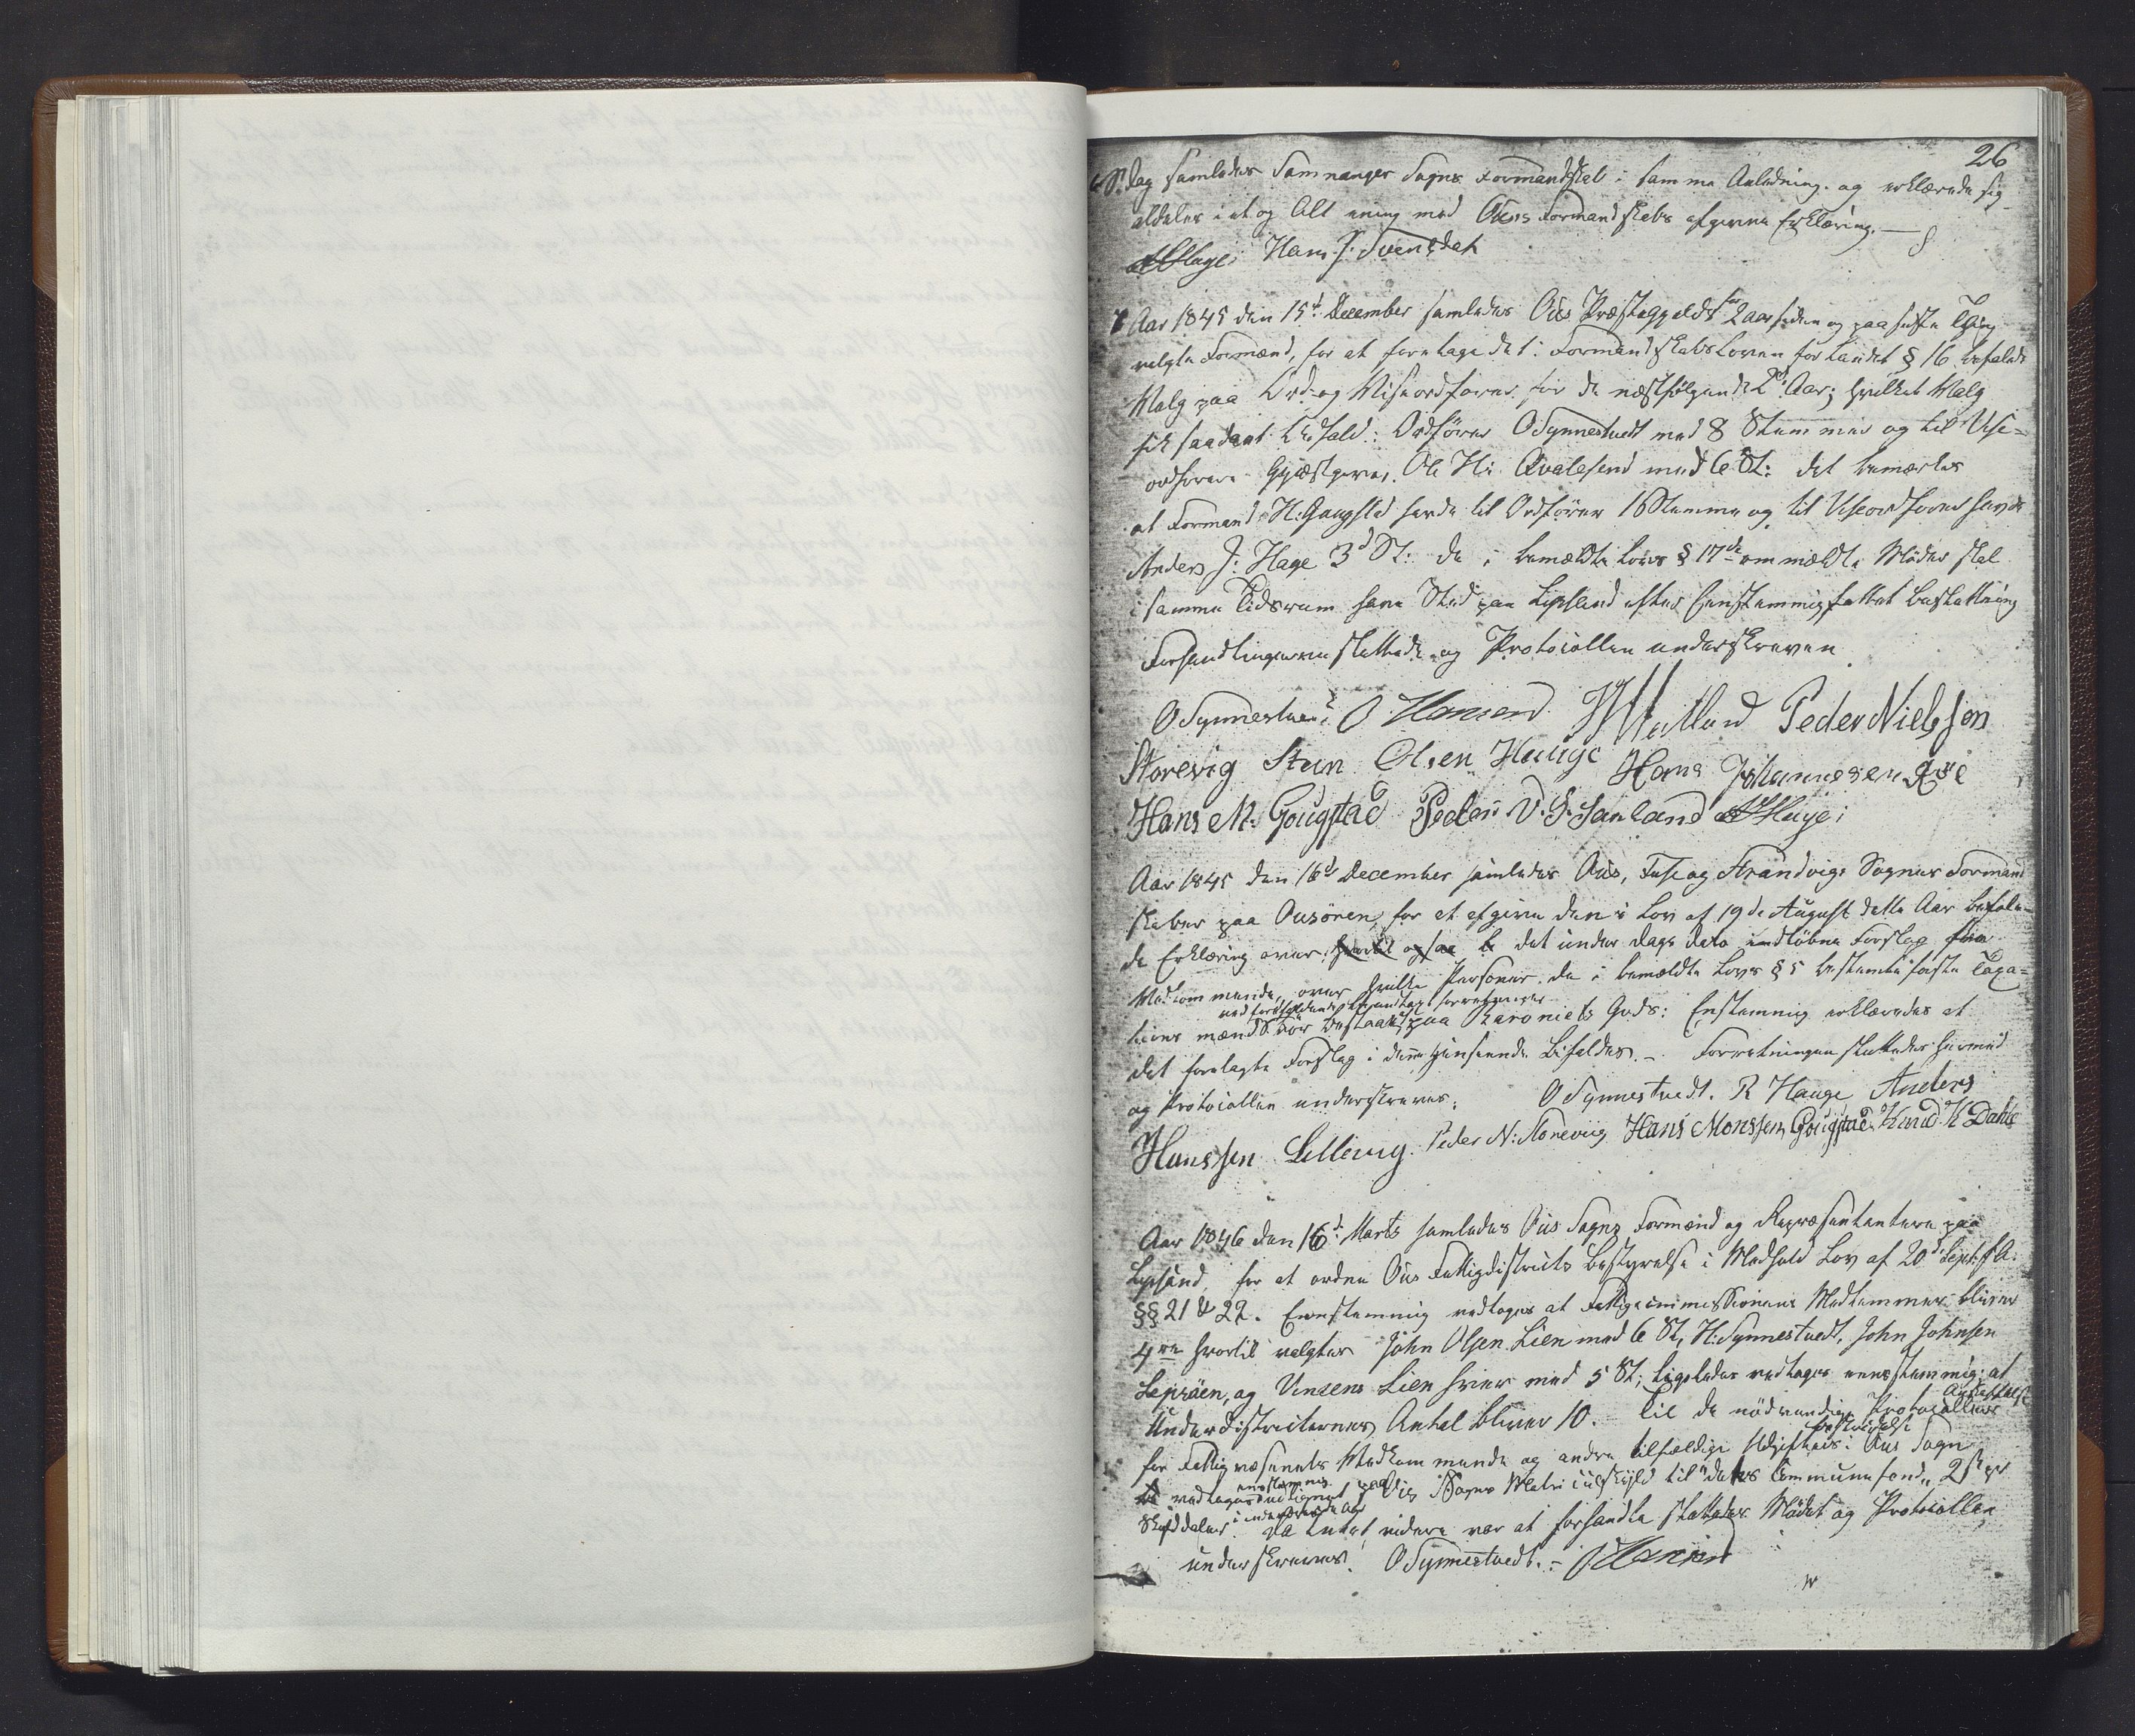 26
S. Dag samledes Samnanger Sogns Formandskab i samme Anledning. og erklærede sig
aldeles i et og Alt enig med Ouss Formandskabs afgivne Erklæring. —
AJHage Hans J. Svensdah
Aar 1845 den 15d December samledes Ous Præstegjelds for 2 aar siden og paa sidste Thing
valgte Formænd, for at foretage det i Formandskabs Loven for Landet § 16 befalede
Valg paa Ord- og Viseordfører for de næstfølgende 2de Aar; hvilket Valg
fik saadant Udfald: Ordfører OSynnestvedt med 8 Stemmer og til Vise-
ordfører Gjæstgiver, Ole Hs: Qvalesund med 6 St: det bemærkes
at Formand H: Gaugstd havde til Ordfører 1 Stemme og til Viseordfører havde
Anders J: Hage 3d St: de i bemeldte Lovs § 17de ommeldte Møder skal
i samme Tidsrum have Sted paa Lepsland efter Eenstemmig fattet beslutning
Forhandlingerne sluttede og Protocollen underskreven
OSynnestvedt O Hansen Hatland Peder Nielsson
Storevig Steen Olsen Hauge Hans Johannesen Røe
Hans M. Gougstad Peder V. S. Sanland AJHage
Aar 1845 den 16d December samledes Ous, Fuse og Strandvigs Sognes Formand
skaber paa Ousøren, for at afgive den i Lov af 19de August dette Aar befale-
de Erklæring over det under Dags dato indløbne Forslag fra
Vedkommende, over hvilke Personer de i bemældte Lovs § 5 bestemte faste Taxa-
tions mænd bør bestaa ved forefaldende forretninger paa Baroniets Gods: Enstemmig erklæredes at
det forelagte Forslag i denne henseende bifaldes. – Forretningen sluttedes hermed
og Protocollen underskreves. OSynnestvedt. R Hauge Anders
Hanssen Lellevig. Peder N: Storeviig Hans Monssen Gougstad Knud K Dahle
Aar 1846 den 16d Marts samledes Ous Sogns Formænd og Repræsentantere paa
Lepsånd, for at ordne Ous Fattigdistricts Bestyrelse i Medhold Lov af 20d Sept. f. A.
§§ 21 & 22. Eenstemmig vedtoges at Fattigcommissionens Medlemmer bliver
4re hvortil valgtes John Olsen Lien med 6 St, H: Synnestvedt, John Johnsen
Lepsøen, og Vinzens Lien hver med 5 St; Ligeledes vedtoges eenstemmig: at
Underdistricternes Antal bliver 10. – Til de nødvendige Protocollers Anskaffelse
for Fattigvæsenets Vedkommende og andre tilfældige Udgifters bestridelse i Ous Sogn
vedtoges eenstemmig udlignet paa Ous Sogns Matriculskyld til dets Communefond „ 2 sk pr
Skylddaler i indeværende Aar. Da Intet videre var at forhandle sluttedes Mødet og Protocollen
underskreves. OSynnestvedt. – OHansen